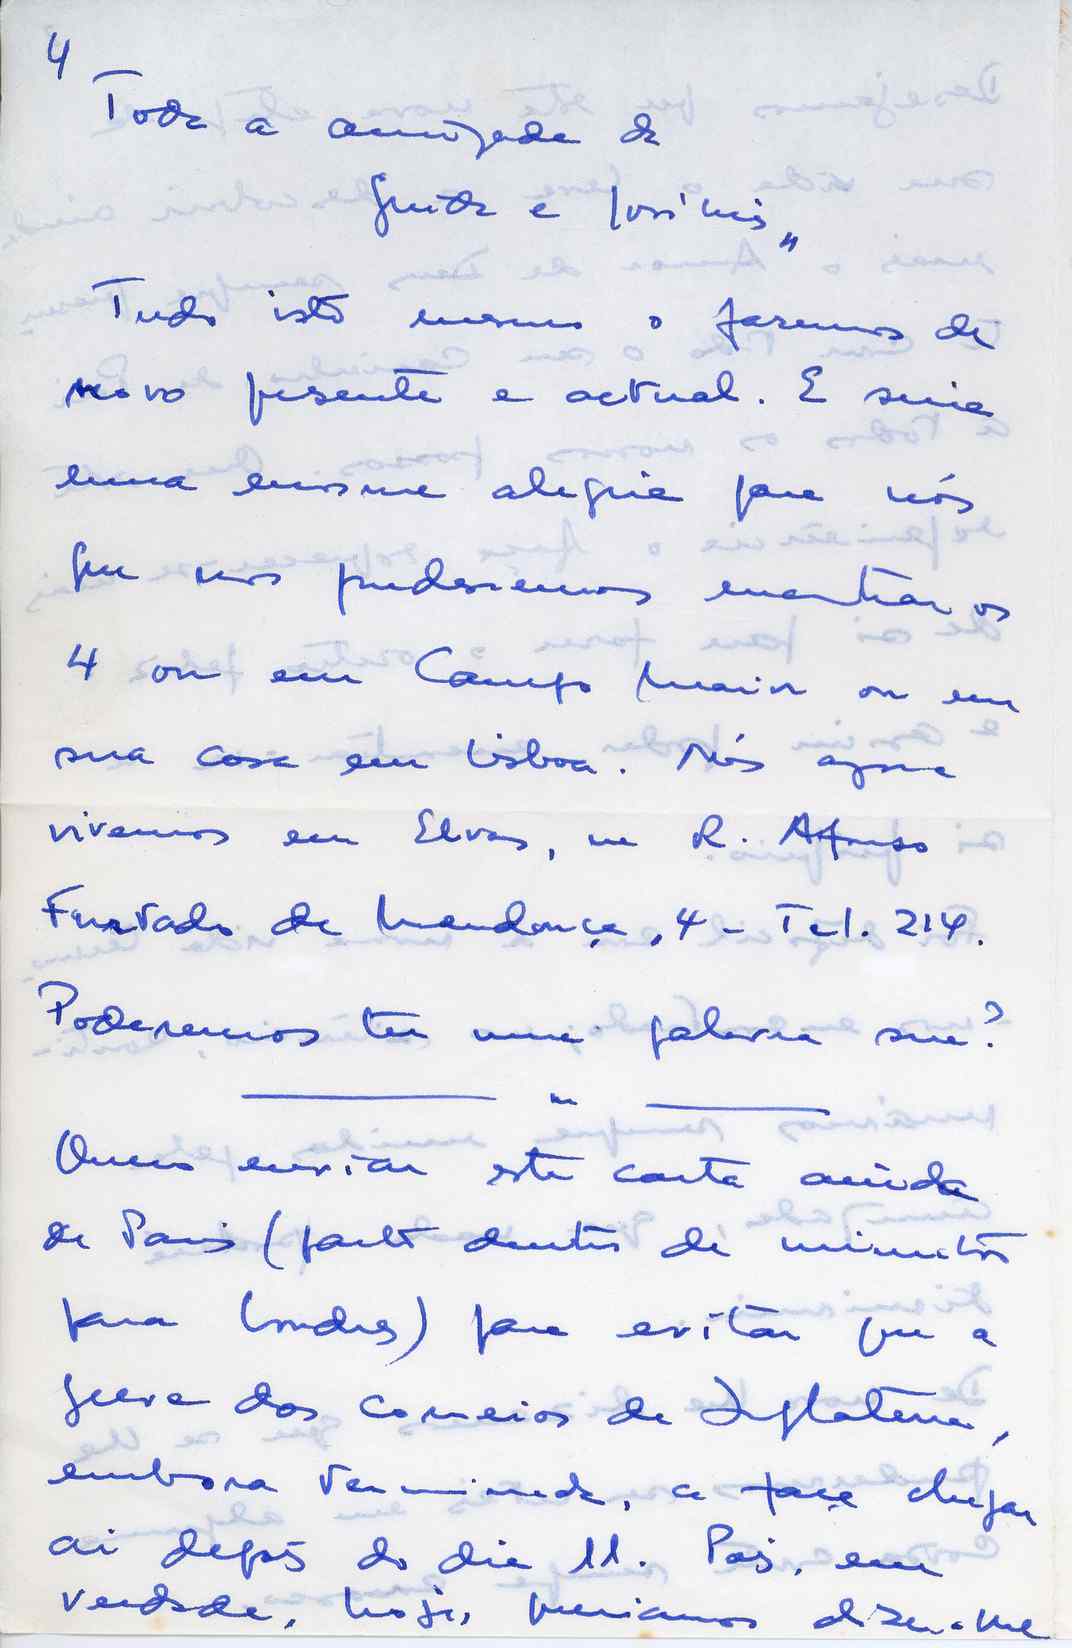 4
Toda a amizade de
Guida e José Luis"
Tudo isto mesmo o fazemos de
novo presente e actual. E seria
uma enorme alegria para nós
que nos pudessemos encontrar os
4 ou em Campo Maior ou em
sua casa em Lisboa. Nós agora
vivemos em Elvas, na R. Afonso
Furtado de Mendonça, 4 - Tel. 214.
Poderemos ter uma palavra sua?
Quero enviar esta carta ainda
de Paris (parto dentro de minutos
para Londres) para evitar que a
greve dos correios de Inglaterra,
embora terminada, a faça chegar
aí depois do dia 11. Pois, em
verdade, hoje, queriamos dizer-lhe